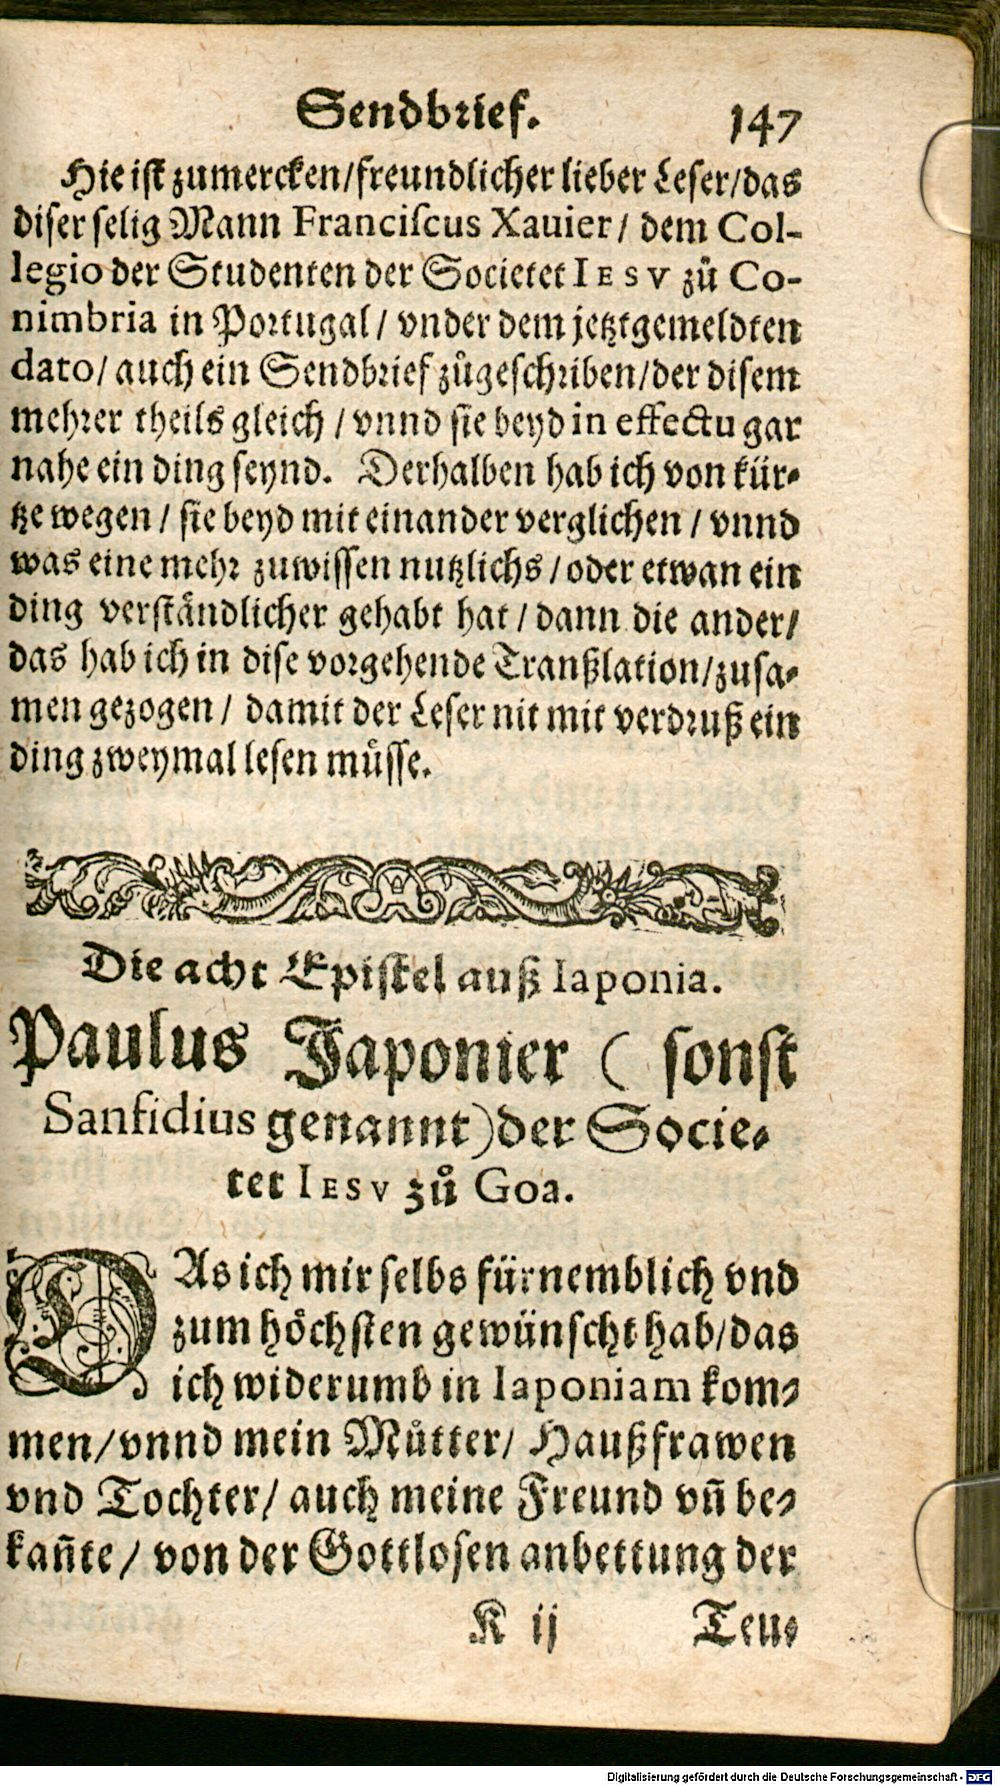 Sendbrief. 147
Hie ist zumercken/freundlicher lieber Leser/das
diser selig Mann Franciscus Xauier/ dem Col-
legio der Studenten der Societet IESV zů Co-
nimbria in Portugal/ vnder dem jetztgemeldten
dato/ auch ein Sendbrief zůgeschriben/der disem
mehrer theils gleich/ vnnd sie beyd in effectu gar
nahe ein ding seynd. Derhalben hab ich von kür-
tze wegen/ sie beyd mit einander verglichen/ vnnd
was eine mehr zuwissen nutzlichs/oder etwan ein
ding verständlicher gehabt hat/ dann die ander/
das hab ich in dise vorgehende Tranßlation/zusa-
men gezogen/ damit der Leser nit mit verdruß ein
ding zweymal lesen müsse.
Die acht Epistel auß Iaponia.
Paulus Japonier ( sonst
Sanfidius genannt) der Socie-
tet IESV zů Goa.
DAs ich mir selbs fürnemblich vnd
zum höchsten gewünscht hab/das
ich widerumb in Iaponiam kom-
men/vnnd mein Můtter/ Haußfrawen
vnd Tochter/ auch meine Freund vn̄ be-
kan̄te/ von der Gottlosen anbettung der
K ij Teu-
Digitalisierung gefördert durch die Deutsche Forschungsgemeinschaft - DFG